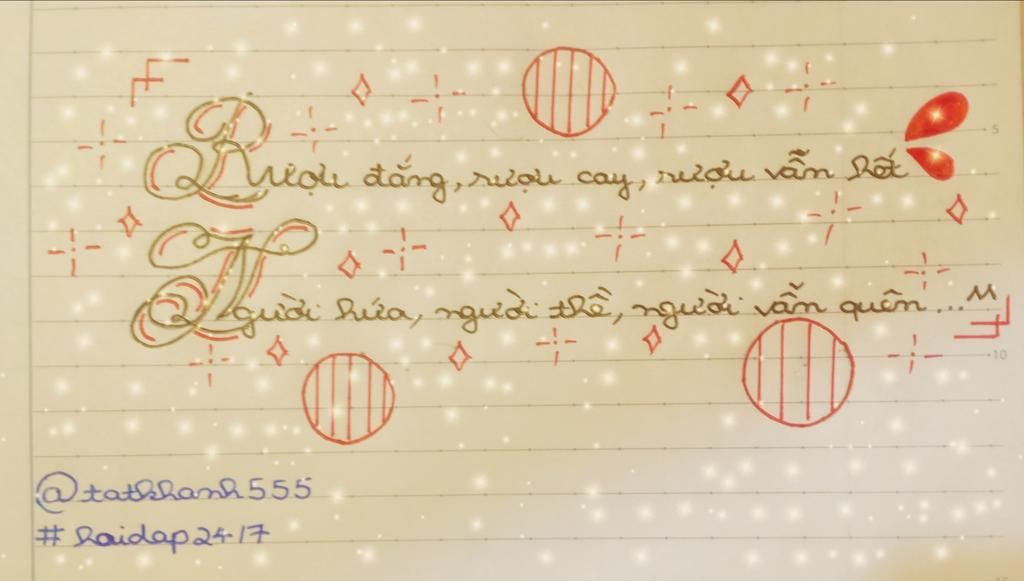 Rượu đắng, rượu cay, rượu vẫn hết
Người hứa, người thề, người vẫn quên...
M
@tatkhanh555
# haidap24-17
5
10